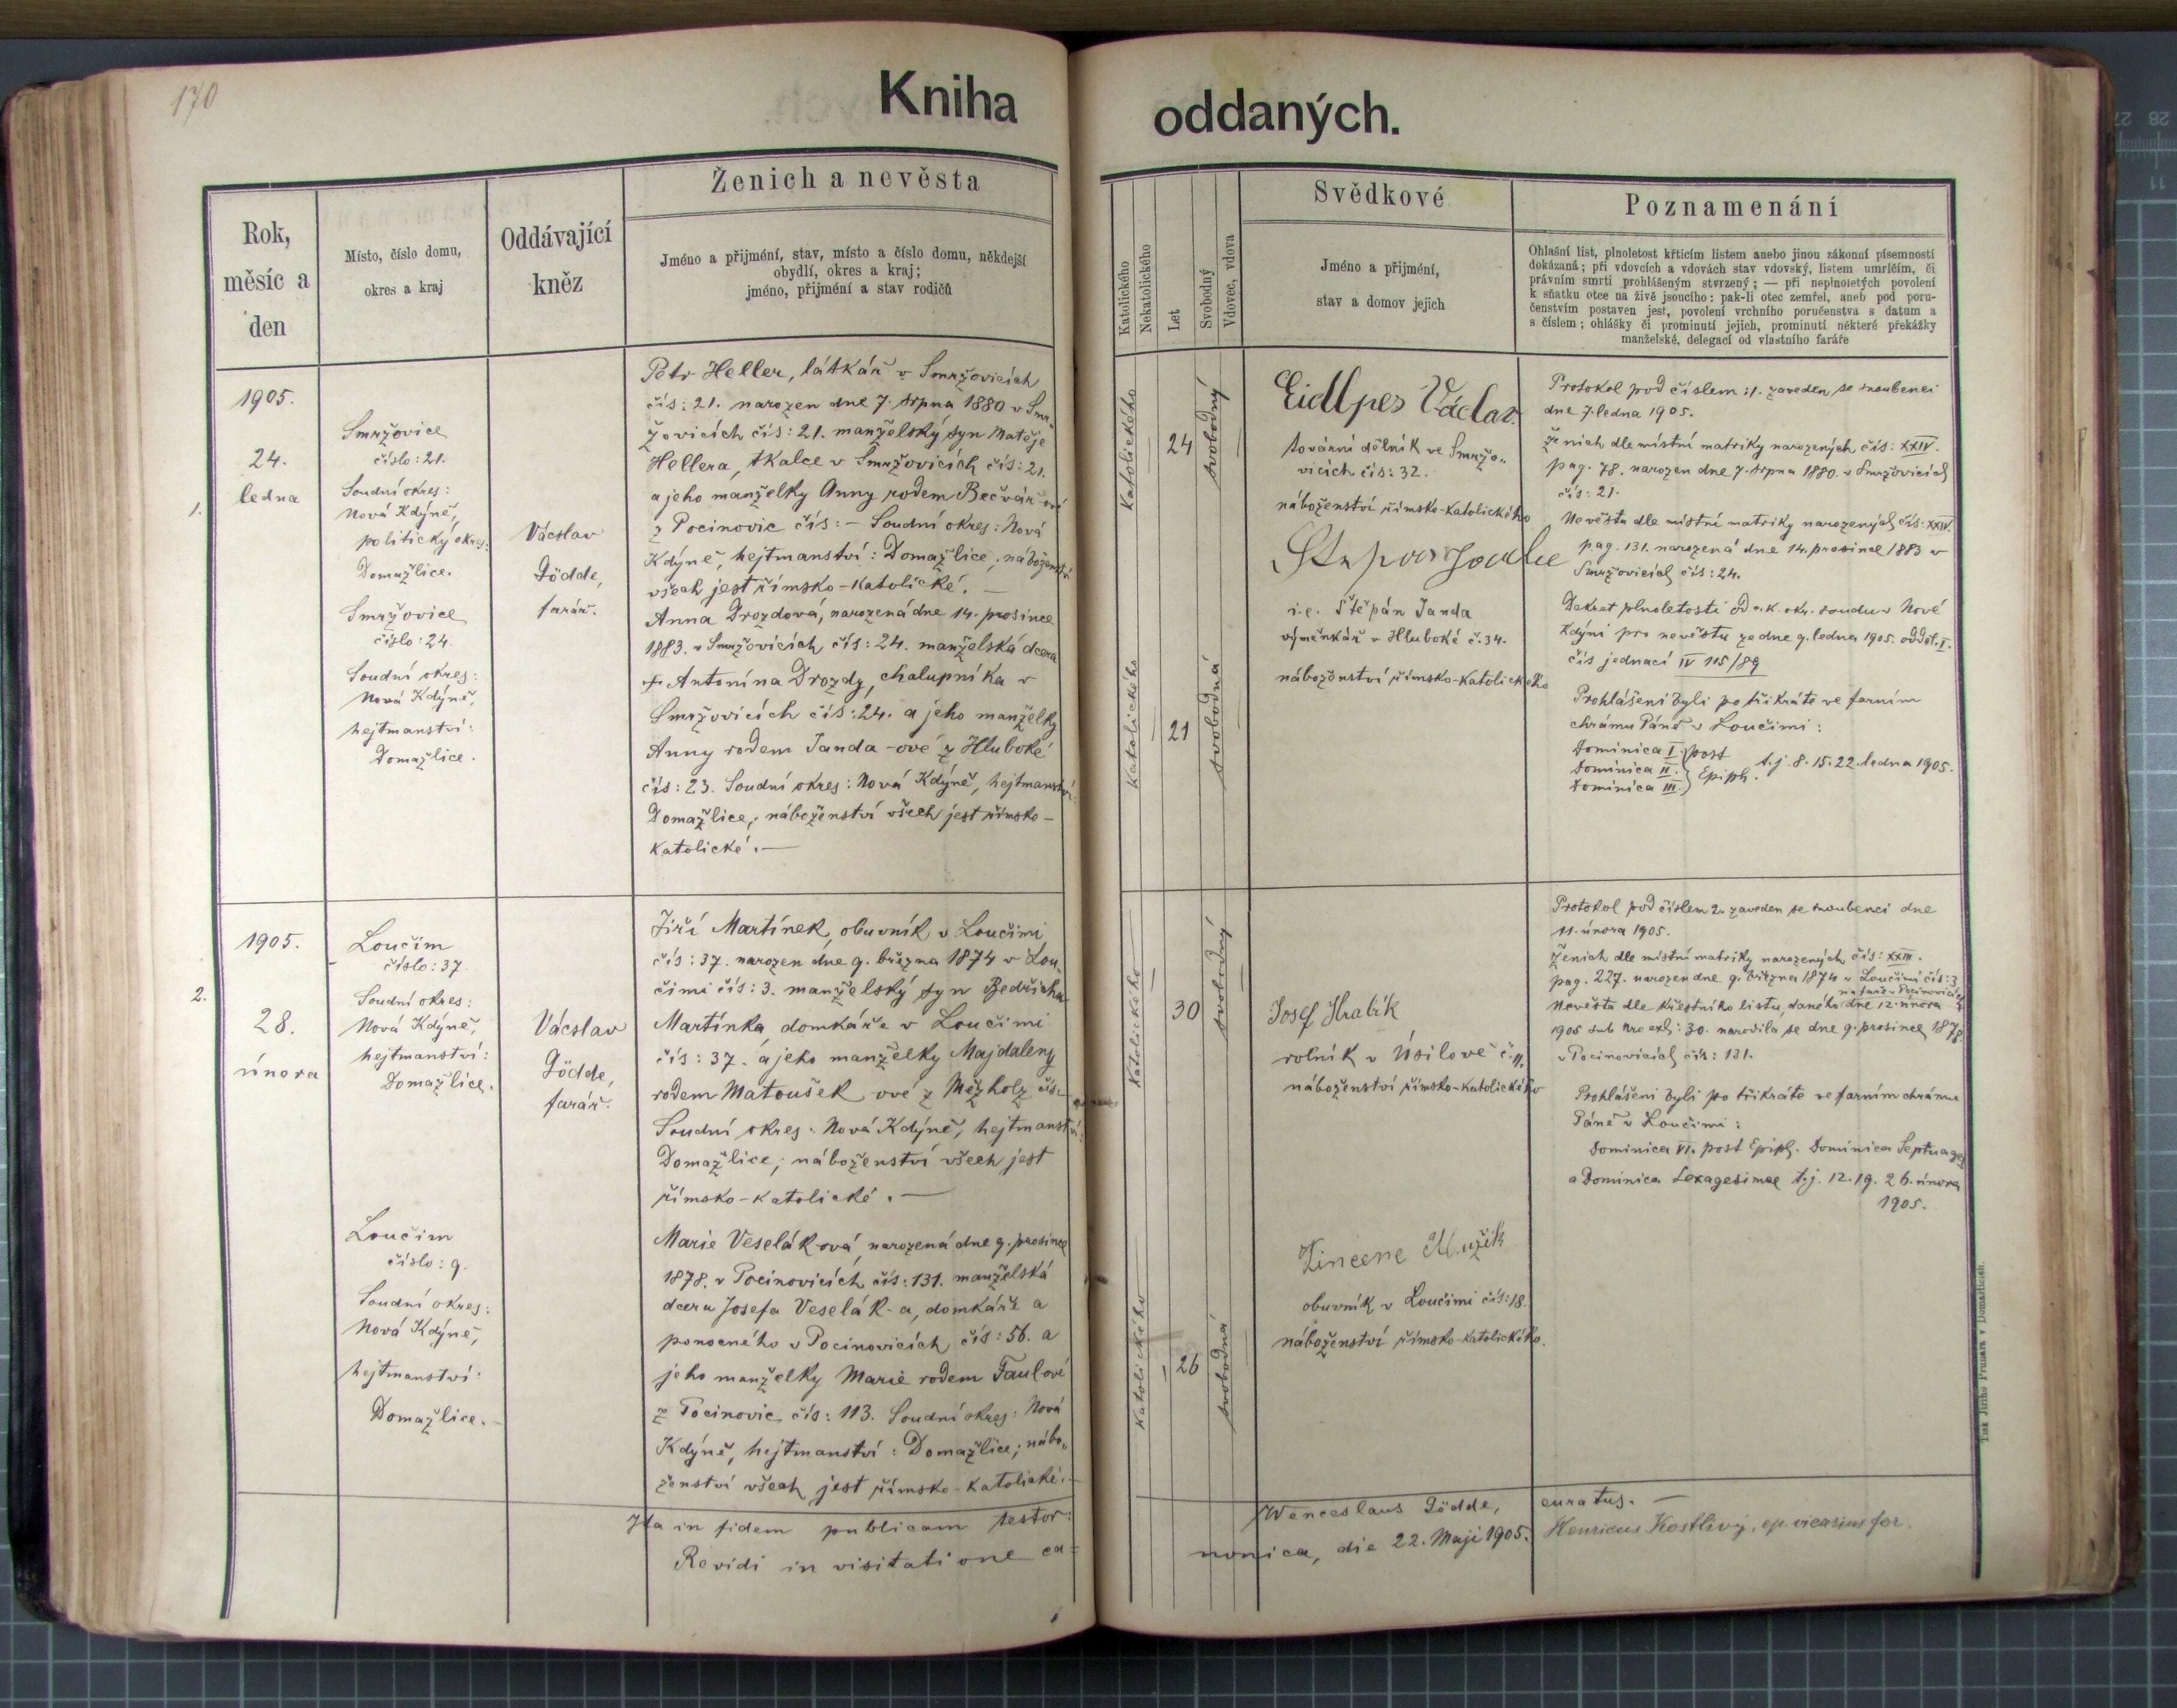 170
Kniha
oddaných.
Rok,
měsíc a
den
Místo, číslo domu,
okres a kraj
Oddávající
kněz
Ženich a nevěsta
Jméno a přijmění, stav, místo a číslo domu, někdejší
obydlí, okres a kraj;
jméno, přijmění a stav rodičů
Katolického
Nekatolického
Let
Svobodný
Vdovec, vdova
Svědkové
Jméno a přijmění,
stav a domov jejich
Poznamenání
Ohlašní list, plnoletost křticím listem anebo jinou zákonní písemností
dokázaná; při vdovcích a vdovách stav vdovský, listem umrlčím, či
právním smrti prohlášeným stvrzený; — při neplnoletých povolení
k sňatku otce na živě jsoucího: pak-li otec zemřel, aneb pod poru-
čenstvím postaven jest, povolení vrchního poručenstva s datum a
s číslem; ohlášky či prominutí jejich, prominutí některé překážky
manželské, delegací od vlastního faráře
1.
1905.
24.
ledna
Smržovice
číslo: 21.
Soudní okres:
Nová Kdýně,
politický okres:
Domažlice.
Smržovice
číslo: 24.
Soudní okres:
Nová Kdýně,
hejtmanství:
Domažlice.
Václav
Dödde,
farář.
Petr Heller, látkář v Smržovicích
čís: 21. narozen dne 7. srpna 1880 v Smr„
žovicích čís: 21. manželský syn Matěje
Hellera, tkalce v Smržovicích čís: 21.
a jeho manželky Anny rodem Bečvář-ové
z Pocinovic čís: – Soudní okres: Nová
Kdýně, hejtmanství: Domažlice; náboženství
všech jest římsko-katolické. —
Anna Drozdová, narozená dne 14. prosince
1883. v Smržovicích čís: 24. manželská dcera
† Antonína Drozdy, chalupníka v
Smržovicích čís: 24. a jeho manželky
Anny rodem Janda-ové z Hluboké
čís: 23. Soudní okres: Nová Kdýně, hejtmanství:
Domažlice; náboženství všech jest římsko-
katolické. —
Katolického
24
svobodný
Katolického
21
svobodná
Eidlpes Václav.
tovární dělník ve Smržo„
vicích čís: 32.
náboženství římsko-katolického
i.e. Štěpán Janda
výměnkář v Hluboké č. 34.
náboženství římsko-katolického
Protokol pod číslem: 1. zaveden se snoubenci
dne 7. ledna 1905.
Ženich dle místní matriky narozených čís: XXIV.
pag. 78. narozen dne 7. srpna 1880. v Smržovicích
čís: 21.
Nevěsta dle místní matriky narozených čís: XXIV.
pag. 131. narozená dne 14. prosince 1883 v
Smržovicích čís: 24.
Dekret plnoletosti od c.k. okr. soudu v Nové
Kdýni pro nevěstu ze dne 9. ledna 1905. odděl. I.
čís jednací IV 115/89
Prohlášeni byli po třikráte ve farním
chrámu Páně v Loučimi:
Dominica I. post
Dominica II. Epiph. t.j. 8. 15. 22. ledna 1905.
Dominica III.
2.
1905.
28.
února
Loučim
číslo: 37.
Soudní okres:
Nová Kdýně,
hejtmanství:
Domažlice.
Loučim
číslo: 9.
Soudní okres:
Nová Kdýně,
hejtmanství:
Domažlice.
Václav
Dödde,
farář.
Jiří Martínek, obuvník v Loučimi
čís: 37. narozen dne 9. března 1874 v Lou„
čimi čís: 3. manželský syn Bedřicha
Martínka domkáře v Loučimi
čís: 37. a jeho manželky Majdaleny
rodem Matoušek ové z Mezholz čís:
Soudní okres: Nová Kdýně, hejtmanství:
Domažlice; náboženství všech jest
římsko-katolické. —
Marie Veselák-ová, narozená dne 9. prosince
1878. v Pocinovicích čís: 131. manželská
dcera Josefa Veselák-a, domkáře a
ponocného v Pocinovicích čís: 56. a
jeho manželky Marie rodem Faulové
z Pocinovic čís: 113. Soudní okres: Nová
Kdýně, hejtmanství: Domažlice; nábo„
ženství všech jest římsko-katolické. —
Katolického
30
svobodný
Katolického
26
svobodná
Josef Hrabík
rolník v Úsilově č. 11.
náboženství římsko-katolického
Vincenc Mužík
obuvník v Loučimi čís: 18.
náboženství římsko-katolického.
Protokol pod číslem 2. zaveden se snoubenci dne
11. února 1905.
Ženich dle místní matriky narozených čís: XXIII.
pag. 227. narozen dne 9. března 1874 v Loučimi čís: 3
na faře v Pocinovicích
Nevěsta dle křestního listu, daného dne 12. února
1905 sub Nro exh: 30. narodila se dne 9. prosince 1878.
v Pocinovicích čís: 131.
Prohlášeni byli po třikráte ve farním chrámu
Páně v Loučimi:
Dominica VI. post Epiph. Dominica Septuages
a Dominica Sexagesimae t.j. 12. 19. 26. února
1905.
Ita in fidem publicam testor: Wenceslaus Dödde, curatus. —
Revidi in visitatione ca=nonica, die 22. Maji 1905. Henricus Kostlivý, ep. vicarius for.
Tisk Jiřího Prunara v Domažlicích.